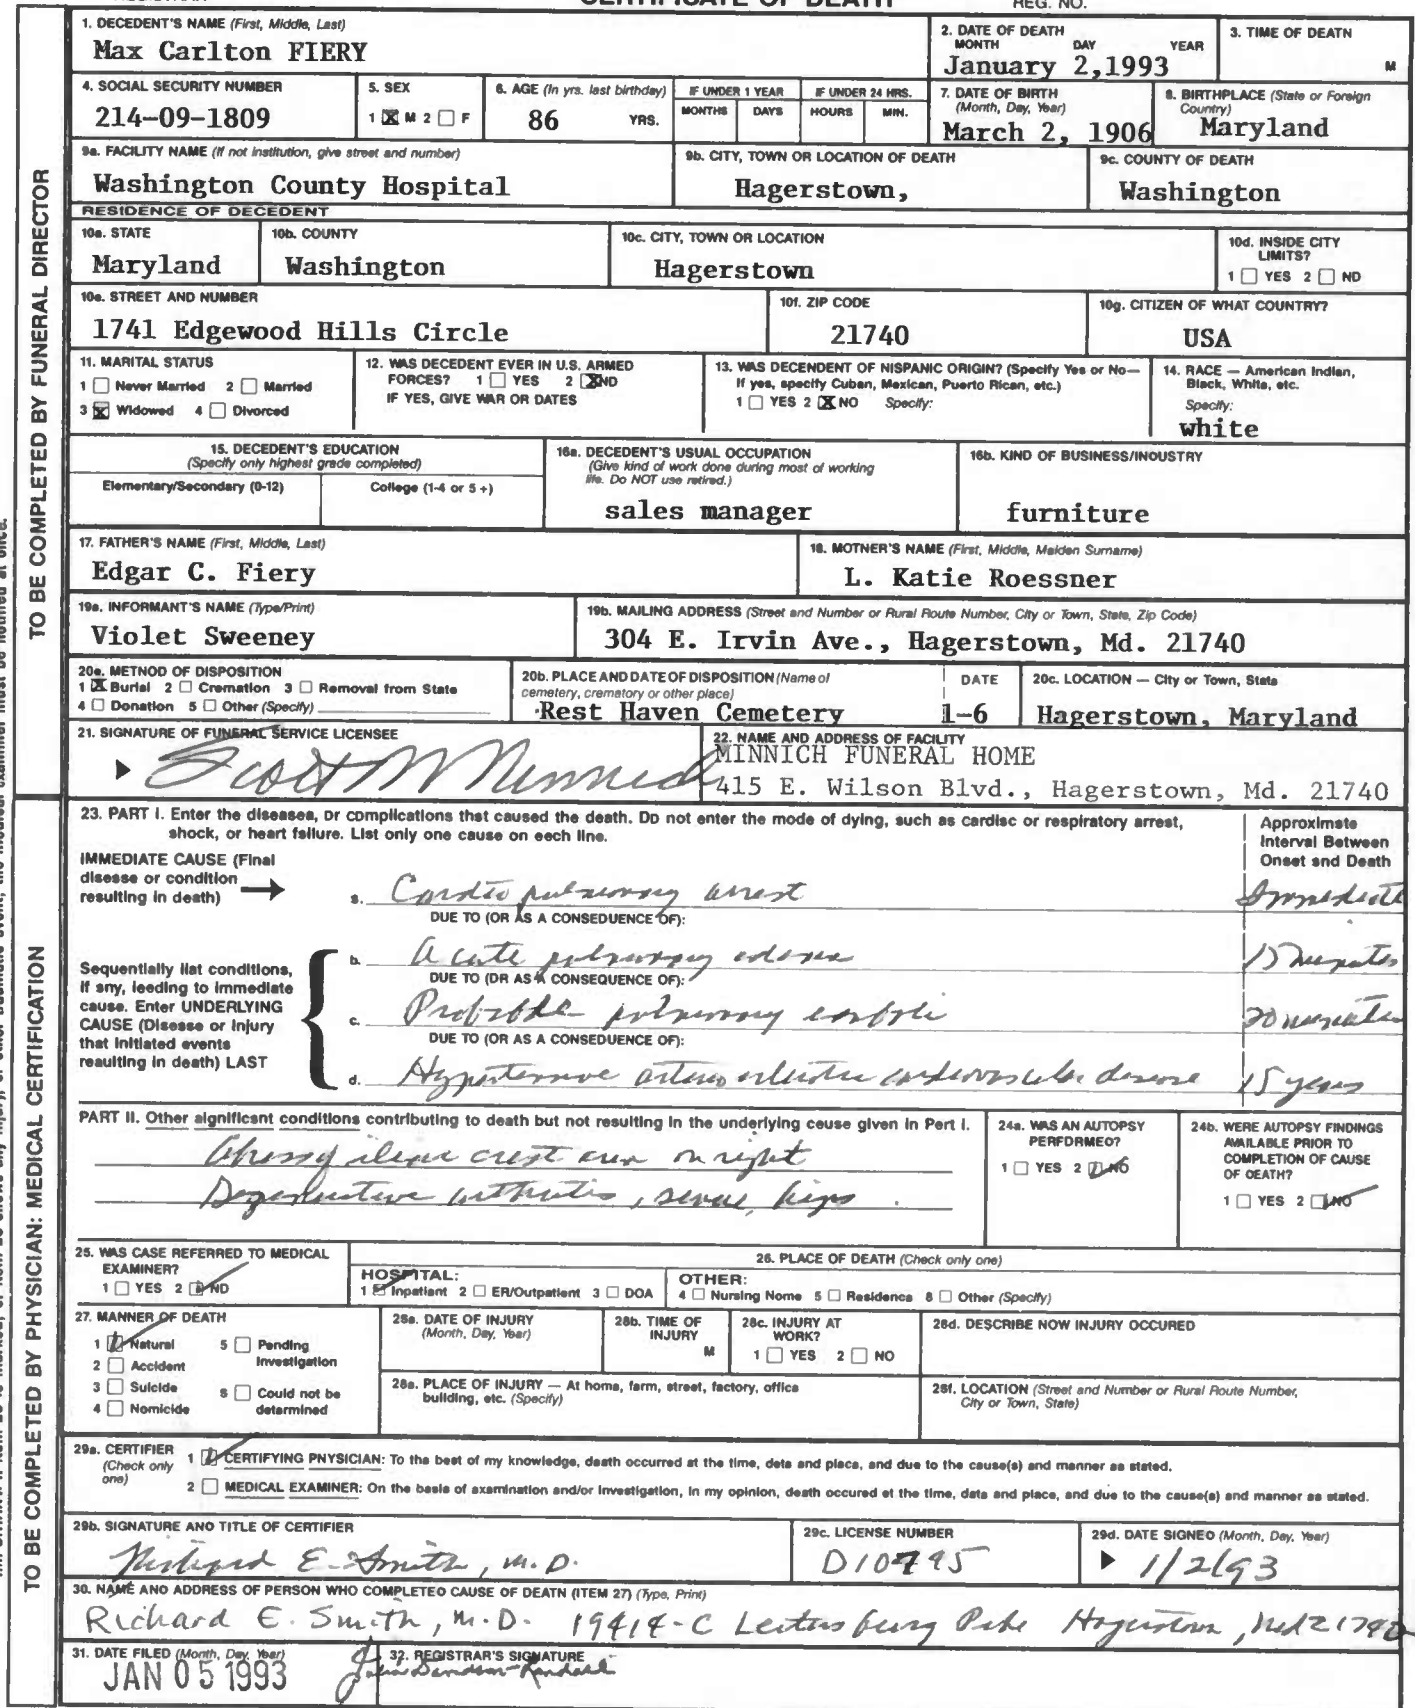 CERTIFICATE OF DEATH
REG. NO.
1. DECEDENT'S NAME (First, Middle, Last)
Max Carlton FIERY
2. DATE OF DEATH
MONTH DAY YEAR
January 2,1993
3. TIME OF DEATH
M
4. SOCIAL SECURITY NUMBER
214-09-1809
5. SEX
1 ☒ M 2 ☐ F
6. AGE (In yrs. last birthday)
86 YRS.
IF UNDER 1 YEAR
MONTHS DAYS
IF UNDER 24 HRS.
HOURS MIN.
7. DATE OF BIRTH
(Month, Day, Year)
March 2, 1906
8. BIRTHPLACE (State or Foreign
Country)
Maryland
9a. FACILITY NAME (If not institution, give street and number)
Washington County Hospital
9b. CITY, TOWN OR LOCATION OF DEATH
Hagerstown,
9c. COUNTY OF DEATH
Washington
RESIDENCE OF DECEDENT
10a. STATE
Maryland
10b. COUNTY
Washington
10c. CITY, TOWN OR LOCATION
Hagerstown
10d. INSIDE CITY
LIMITS?
1 ☐ YES 2 ☐ NO
10e. STREET AND NUMBER
1741 Edgewood Hills Circle
10f. ZIP CODE
21740
10g. CITIZEN OF WHAT COUNTRY?
USA
11. MARITAL STATUS
1 ☐ Never Married 2 ☐ Married
3 ☒ Widowed 4 ☐ Divorced
12. WAS DECEDENT EVER IN U.S. ARMED
FORCES? 1 ☐ YES 2 ☒ NO
IF YES, GIVE WAR OR DATES
13. WAS DECENDENT OF HISPANIC ORIGIN? (Specify Yes or No—
If yes, specify Cuban, Mexican, Puerto Rican, etc.)
1 ☐ YES 2 ☒ NO Specify:
14. RACE — American Indian,
Black, White, etc.
Specify:
white
15. DECEDENT'S EDUCATION
(Specify only highest grade completed)
Elementary/Secondary (0-12) College (1-4 or 5+)
16a. DECEDENT'S USUAL OCCUPATION
(Give kind of work done during most of working
life. Do NOT use retired.)
sales manager
16b. KIND OF BUSINESS/INDUSTRY
furniture
17. FATHER'S NAME (First, Middle, Last)
Edgar C. Fiery
18. MOTHER'S NAME (First, Middle, Maiden Surname)
L. Katie Roessner
19a. INFORMANT'S NAME (Type/Print)
Violet Sweeney
19b. MAILING ADDRESS (Street and Number or Rural Route Number, City or Town, State, Zip Code)
304 E. Irvin Ave., Hagerstown, Md. 21740
20a. METHOD OF DISPOSITION
1 ☒ Burial 2 ☐ Cremation 3 ☐ Removal from State
4 ☐ Donation 5 ☐ Other (Specify)
20b. PLACE AND DATE OF DISPOSITION (Name of
cemetery, crematory or other place)
Rest Haven Cemetery
DATE
1-6
20c. LOCATION — City or Town, State
Hagerstown, Maryland
21. SIGNATURE OF FUNERAL SERVICE LICENSEE
Scott M Minnich
22. NAME AND ADDRESS OF FACILITY
MINNICH FUNERAL HOME
415 E. Wilson Blvd., Hagerstown, Md. 21740
TO BE COMPLETED BY FUNERAL DIRECTOR
23. PART I. Enter the diseases, or complications that caused the death. Do not enter the mode of dying, such as cardiac or respiratory arrest,
shock, or heart failure. List only one cause on each line.
Approximate
Interval Between
Onset and Death
IMMEDIATE CAUSE (Final
disease or condition
resulting in death)
a. Cardio pulmonary arrest Immediate
DUE TO (OR AS A CONSEQUENCE OF):
Sequentially list conditions,
if any, leading to immediate
cause. Enter UNDERLYING
CAUSE (Disease or injury
that initiated events
resulting in death) LAST
b. Acute pulmonary edema 15 minutes
DUE TO (OR AS A CONSEQUENCE OF):
c. Probable pulmonary emboli 20 minutes
DUE TO (OR AS A CONSEQUENCE OF):
d. Hypertensive arteriosclerotic cardiovascular disease 15 years
PART II. Other significant conditions contributing to death but not resulting in the underlying cause given in Part I.
iliac crest area on right
Degenerative arthritis, severe, hips.
24a. WAS AN AUTOPSY
PERFORMED?
1 ☐ YES 2 ☑ NO
24b. WERE AUTOPSY FINDINGS
AVAILABLE PRIOR TO
COMPLETION OF CAUSE
OF DEATH?
1 ☐ YES 2 ☑ NO
25. WAS CASE REFERRED TO MEDICAL
EXAMINER?
1 ☐ YES 2 ☑ NO
26. PLACE OF DEATH (Check only one)
HOSPITAL:
1 ☑ Inpatient 2 ☐ ER/Outpatient 3 ☐ DOA
OTHER:
4 ☐ Nursing Home 5 ☐ Residence 6 ☐ Other (Specify)
27. MANNER OF DEATH
1 ☑ Natural 5 ☐ Pending
Investigation
2 ☐ Accident
3 ☐ Suicide 6 ☐ Could not be
determined
4 ☐ Homicide
28a. DATE OF INJURY
(Month, Day, Year)
28b. TIME OF
INJURY
M
28c. INJURY AT
WORK?
1 ☐ YES 2 ☐ NO
28d. DESCRIBE HOW INJURY OCCURED
28e. PLACE OF INJURY — At home, farm, street, factory, office
building, etc. (Specify)
28f. LOCATION (Street and Number or Rural Route Number,
City or Town, State)
29a. CERTIFIER
(Check only
one)
1 ☑ CERTIFYING PHYSICIAN: To the best of my knowledge, death occurred at the time, date and place, and due to the cause(s) and manner as stated.
2 ☐ MEDICAL EXAMINER: On the basis of examination and/or investigation, in my opinion, death occured at the time, date and place, and due to the cause(s) and manner as stated.
29b. SIGNATURE AND TITLE OF CERTIFIER
Richard E. Smith, M.D.
29c. LICENSE NUMBER
D10795
29d. DATE SIGNED (Month, Day, Year)
1/2/93
30. NAME AND ADDRESS OF PERSON WHO COMPLETED CAUSE OF DEATH (ITEM 27) (Type, Print)
Richard E. Smith, M.D. 19414-C Leitersburg Pike Hagerstown, Md 21740
31. DATE FILED (Month, Day, Year)
JAN 05 1993
32. REGISTRAR'S SIGNATURE
TO BE COMPLETED BY PHYSICIAN: MEDICAL CERTIFICATION